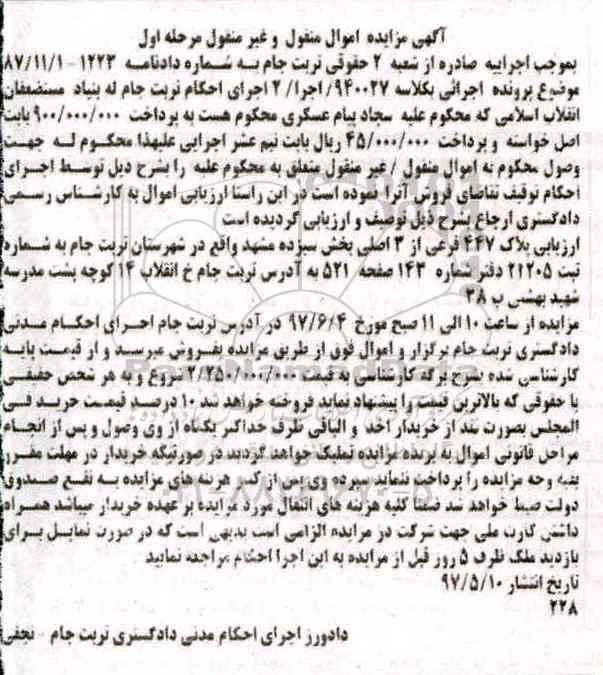 آگهی مزایده اموال منقول و غیر منقول مرحله اول
بموجب اجراییه صادره از شعبه ۲ حقوقی تربت جام به شماره دادنامه ۱۲۲۳ - ۸۷/۱۱/۱
موضوع پرونده اجرائی بکلاسه ۹۴۰۰۲۷/ اجرا/ ۲ اجرای احکام تربت جام له بنیاد مستضعفان
انقلاب اسلامی که محکوم علیه سجاد پیام عسکری محکوم هست به پرداخت ۹۰۰/۰۰۰/۰۰۰ بابت
اصل خواسته و پرداخت ۴۵/۰۰۰/۰۰۰ ریال بابت نیم عشر اجرایی علیهذا محکوم له جهت
وصول محکوم به اموال منقول / غیر منقول متعلق به محکوم علیه را بشرح ذیل توسط اجرای
احکام توقیف تقاضای فروش آنرا نموده است در این راستا ارزیابی اموال به کارشناس رسمی
دادگستری ارجاع بشرح ذیل توصیف و ارزیابی گردیده است
ارزیابی پلاک ۴۴۷ فرعی از ۳ اصلی بخش سیزده مشهد واقع در شهرستان تربت جام به شماره
ثبت ۲۱۲۰۵ دفتر شماره ۱۴۳ صفحه ۵۲۱ به آدرس تربت جام خ انقلاب ۱۴ کوچه پشت مدرسه
شهید بهشتی پ ۳۸
مزایده از ساعت ۱۰ الی ۱۱ صبح مورخ ۹۷/۶/۴ در آدرس تربت جام اجرای احکام مدنی
دادگستری تربت جام برگزار و اموال فوق از طریق مزایده بفروش میرسد و از قیمت پایه
کارشناسی شده بشرح برگه کارشناسی به قیمت ۲/۲۵۰/۰۰۰/۰۰۰ شروع و به هر شخص حقیقی
یا حقوقی که بالاترین قیمت را پیشنهاد نماید فروخته خواهد شد ۱۰ درصد قیمت خرید فی
المجلس بصورت نقد از خریدار اخذ و الباقی ظرف حداکثر یکماه از وی وصول و پس از انجام
مراحل قانونی اموال به برنده مزایده تملیک خواهد گردید در صورتیکه خریدار در مهلت مقرر
بقیه وجه مزایده را پرداخت ننماید سپرده وی پس از کسر هزینه های مزایده به نفع صندوق
دولت ضبط خواهد شد ضمنا کلیه هزینه های انتقال مورد مزایده بر عهده خریدار میباشد همراه
داشتن کارت ملی جهت شرکت در مزایده الزامی است بدیهی است که در صورت تمایل برای
بازدید ملک ظرف ۵ روز قبل از مزایده به این اجرا احکام مراجعه نمایید
تاریخ انتشار ۹۷/۵/۱۰
۲۲۸
دادورز اجرای احکام مدنی دادگستری تربت جام - نجفی